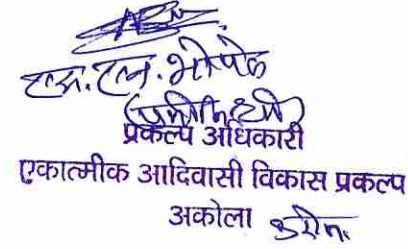 एस. एल. भोपळे
प्रकल्प अधिकारी
एकात्मीक आदिवासी विकास प्रकल्प
अकोला